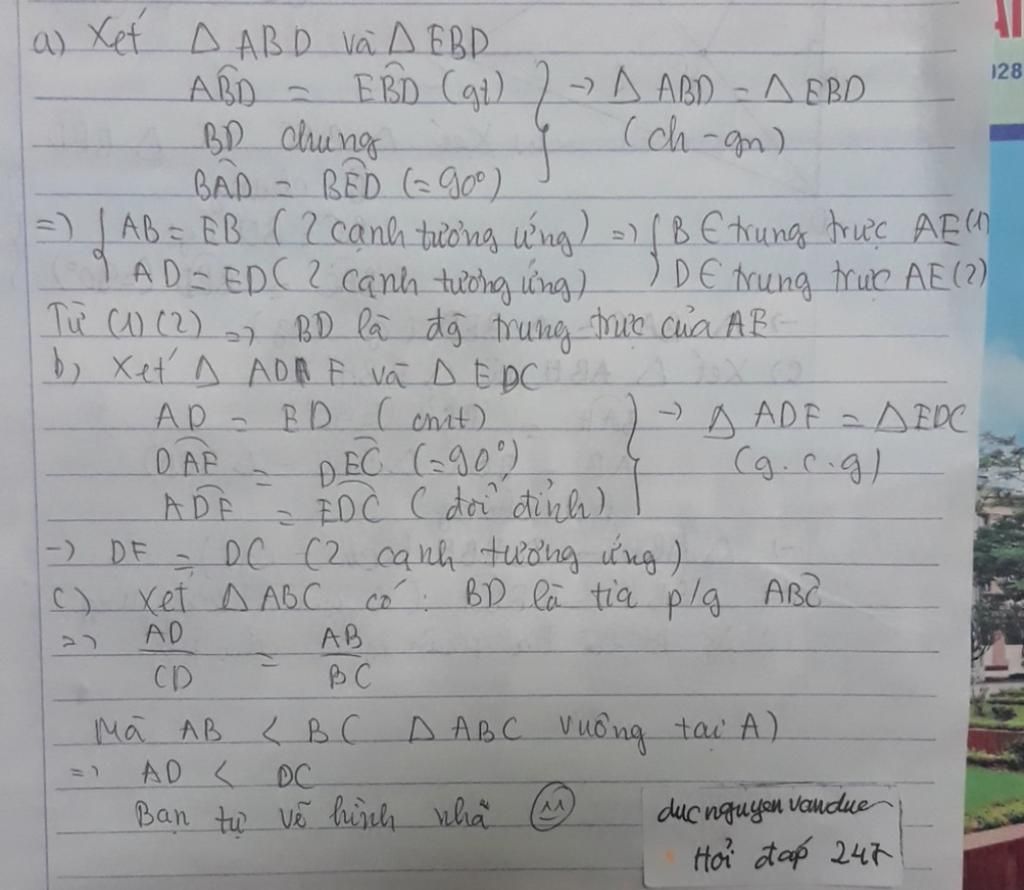 a) Xét Δ ABD và Δ EBD
ABD = EBD (gt) } → Δ ABD = Δ EBD
BD chung (ch - gn)
BAD = BED (= 90°)
=> { AB = EB ( 2 cạnh tương ứng) => { B ∈ trung trực AE (1)
AD = ED ( 2 cạnh tương ứng) D ∈ trung trực AE (2)
Từ (1) (2) => BD là đg trung trực của AE
b) Xét Δ AD F và Δ EDC
AD = ED ( cmt) } → Δ ADF = Δ EDC
DAF = DEC (= 90°) (g.c.g)
ADF = EDC ( đối đỉnh)
→ DF = DC (2 cạnh tương ứng)
c) Xét Δ ABC có : BD là tia p/g ABC
=> AD/CD = AB/BC
Mà AB < BC Δ ABC vuông tại A)
=> AD < DC
Bạn tự vẽ hình nhá
ducnguyenvanduc
Hỏi đáp 247
028